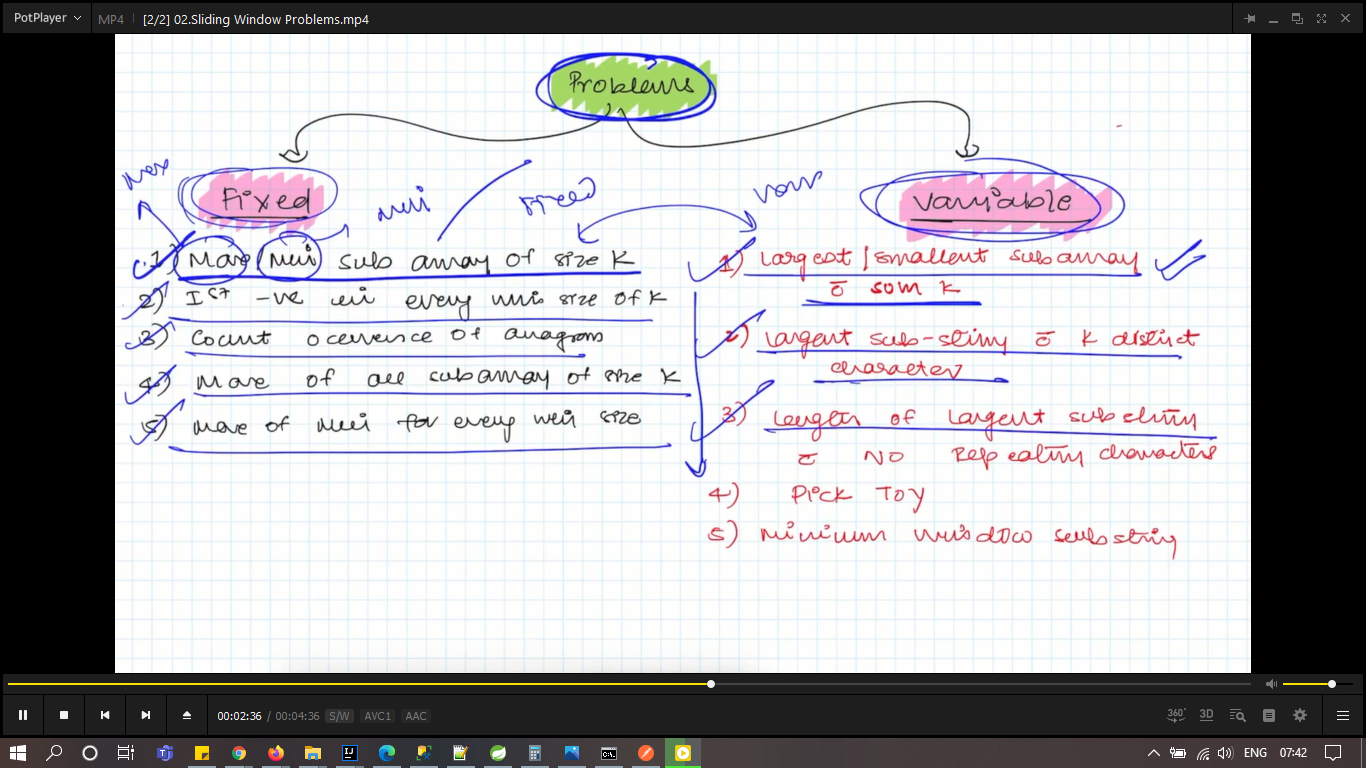 PotPlayer MP4 [2/2] 02.Sliding Window Problems.mp4
Problems
Fixed
Variable
Max
Min
Fixed
Var
1) Max/Min sub array of size K
2) Ist -ve in every win size of K
3) Count occurence of anagram
4) Max of all subarray of size K
5) Max of Min for every win size
1) Largest/smallest subarray
c̄ sum K
2) Largest sub-string c̄ K distinct
character
3) Length of Largest substring
c̄ NO Repeating characters
4) Pick Toy
5) Minimum window substring
00:02:36 / 00:04:36 S/W AVC1 AAC
360° 3D
ENG 07:42